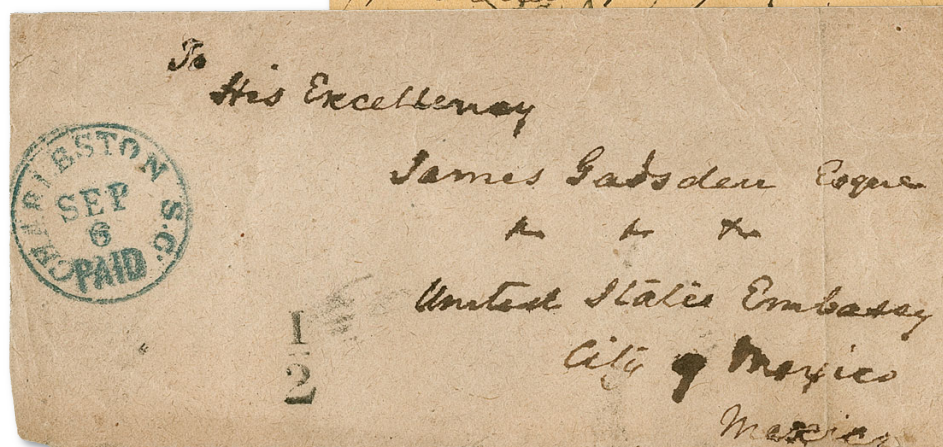 To
His Excellency
James Gadsden Esqre
&c &c &c
United States Embassy
City of Mexico
Mexico
CHARLESTON S.C.
SEP
6
PAID
1
2